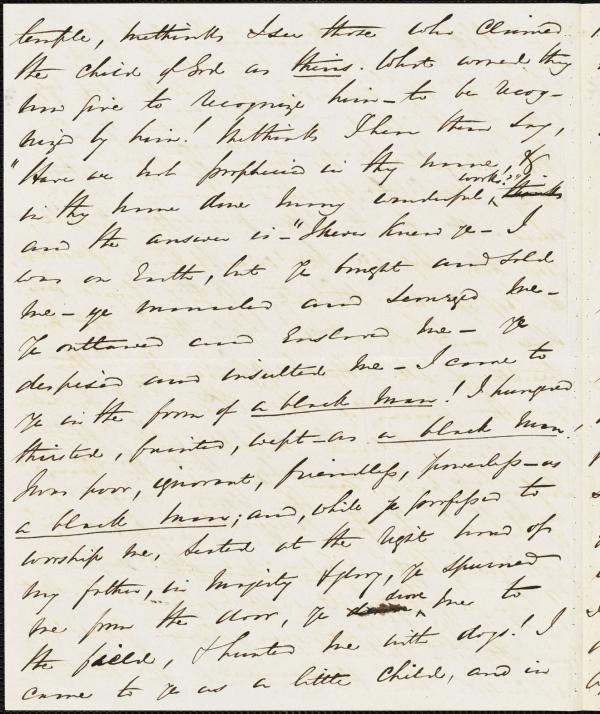 temple, methinks I see those who claimed
the child of God as theirs. What would they
now give to recognize him – to be recog-
nized by him! Methinks I hear them say,
"Have we not prophesied in thy name, &
in thy name done many wonderful works?"
and the answer is – "I never knew ye – I
was on Earth, but ye bought and sold
me – ye manacled and scourged me –
Ye outlawed and enslaved me – Ye
despised and insulted me – I came to
ye in the form of a black man! I hungered
thirsted, fainted, wept – as a black man!
I was poor, ignorant, friendless, powerless – as
a black man; and, while ye professed to
worship me, seated at the right hand of
my father, in majesty & glory, ye spurned
me from the door, ye drove me to
the field, & hunted me with dogs! I
came to ye as a little child, and in